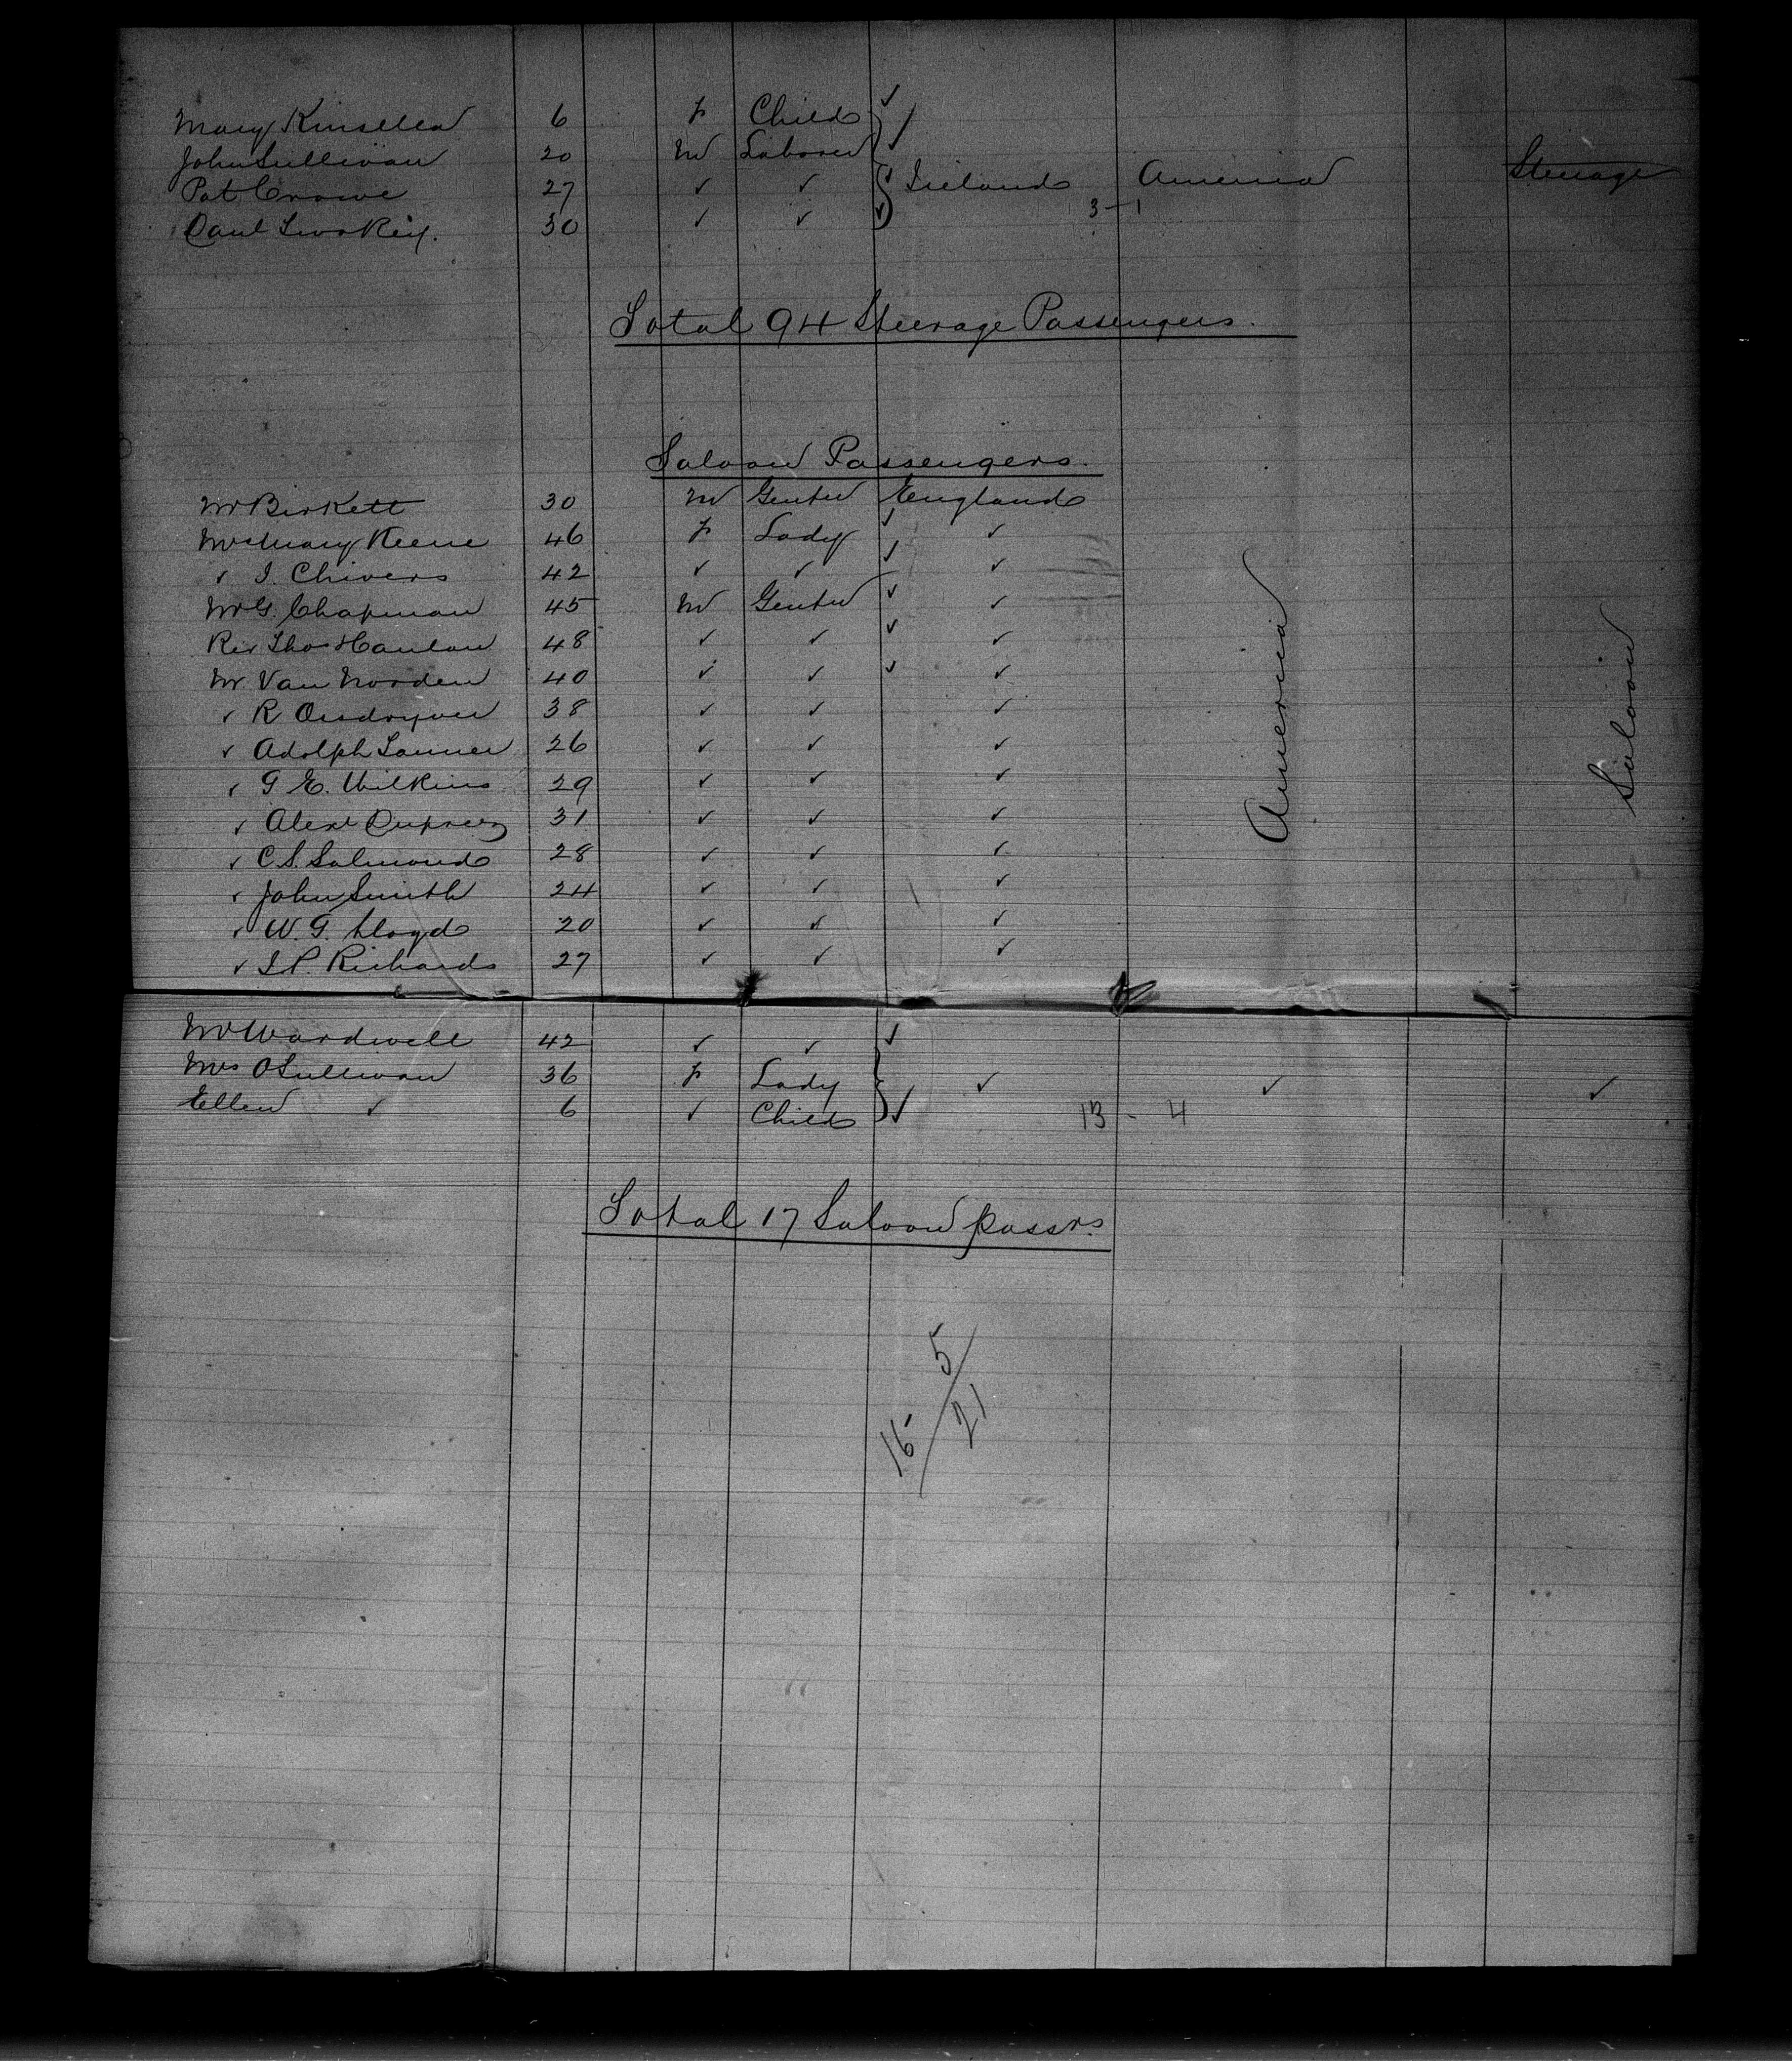 Mary Kinsella 6 F Child ✓
John Sullivan 20 M Laborer ✓
Pat Crowe 27 ✓ ✓ Ireland America Steerage
Paul 30 ✓ ✓ 3-1
Total 94 Steerage Passengers.
Saloon Passengers.
Mr Birkett 30 M Gentn England
Mrs Mary Keene 46 F Lady ✓ ✓
✓ I. Chivers 42 ✓ ✓ ✓ ✓
Mr G. Chapman 45 M Gentn ✓ ✓
Rev Thos Hanlon 48 ✓ ✓ ✓ ✓
Mr. Van Norden 40 ✓ ✓ ✓ ✓
✓ R 38 ✓ ✓ ✓
✓ Adolph 26 ✓ ✓ ✓
✓ G E. Wilkins 29 ✓ ✓ ✓
✓ Alexr Dupreez 31 ✓ ✓ ✓
✓ C. S. Salmond 28 ✓ ✓ ✓
✓ John Smith 24 ✓ ✓ ✓
✓ W. G. Lloyd 20 ✓ ✓ ✓
✓ I. P. Richards 27 ✓ ✓ ✓
America
Saloon
Mr Wardwell 42 ✓ ✓ ✓
Mrs OSullivan 36 F Lady ✓ ✓ ✓
Ellen ✓ 6 ✓ Child ✓ 13 - 4
Total 17 Saloon passrs.
5
16 / 21